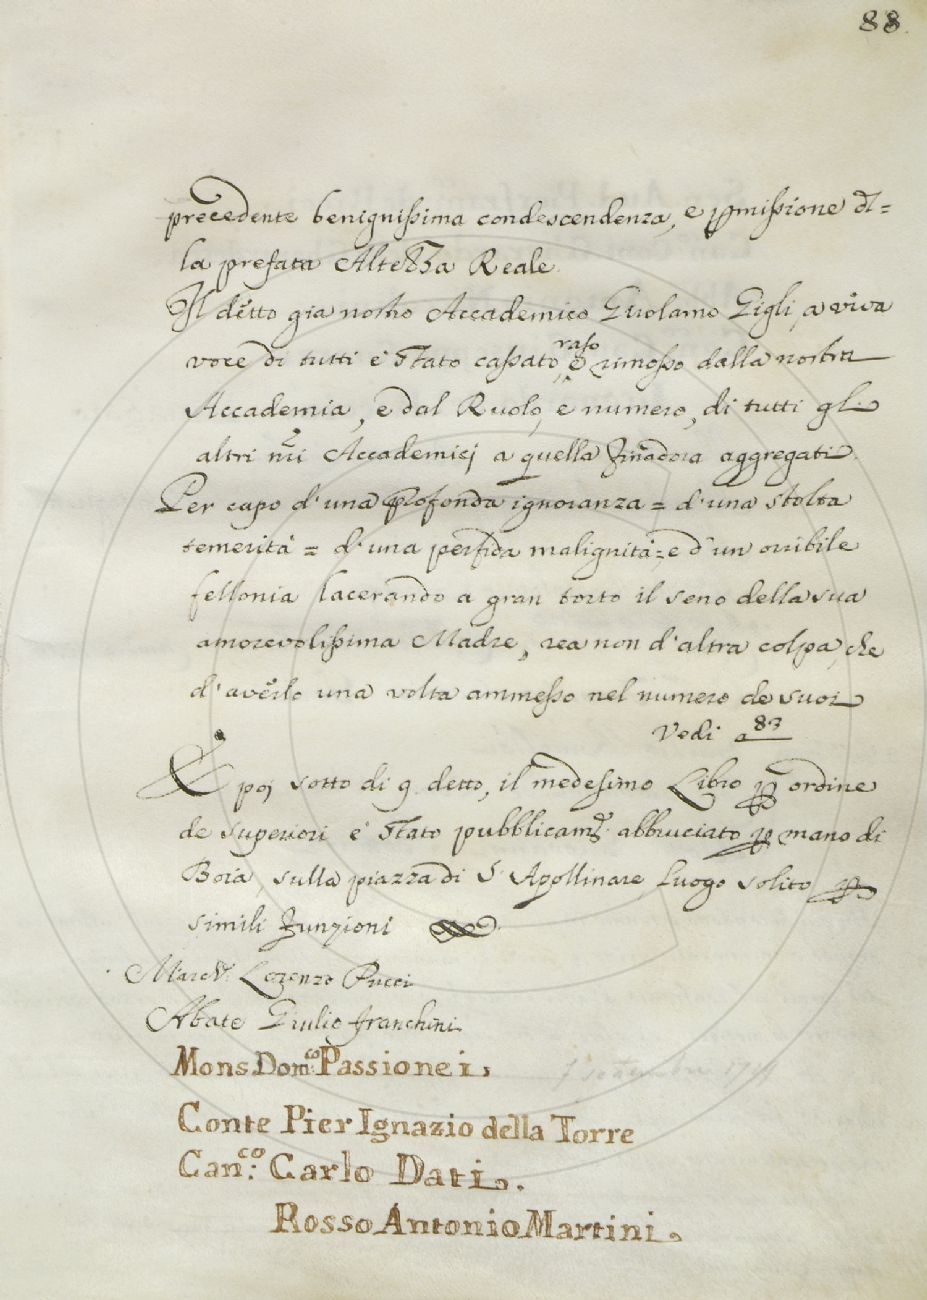 88.
precedente benignissima condescendenza, e p̱missione di=
la prefata Altezza Reale.
Il detto gia nostro Accademico Girolamo Gigli, a viva
voce di tutti e' stato cassato, raso e rimosso dalla nostra
Accademia, e dal Ruolo, e numero, di tutti gl.
altri nri Accademicj a quella finadora aggregati.
Per capo d'una profonda ignoranza = d'una stolta
temerità = d'una perfida malignità =, e d'un orribile
fellonia lacerando a gran torto il seno della sua
amorevolissima Madre, rea non d'altra colpa, che
d'averlo una volta ammesso nel numero de suoi
Vedi a 83
E poj sotto di 9. detto, il medesimo Libro p̱ ordine
de superiori e' stato pubblicamte. abbruciato p̱ mano di
Boia, sulla piazza di S. Apollinare, Luogo solito p̱
simili Funzioni
March. Lorenzo Pucci
Abate Giulio Franchini.
Mons. Domco: Passionei,
7 settembre 17
Conte Pier Ignazio della Torre
Canco: Carlo Dati.
Rosso Antonio Martini.